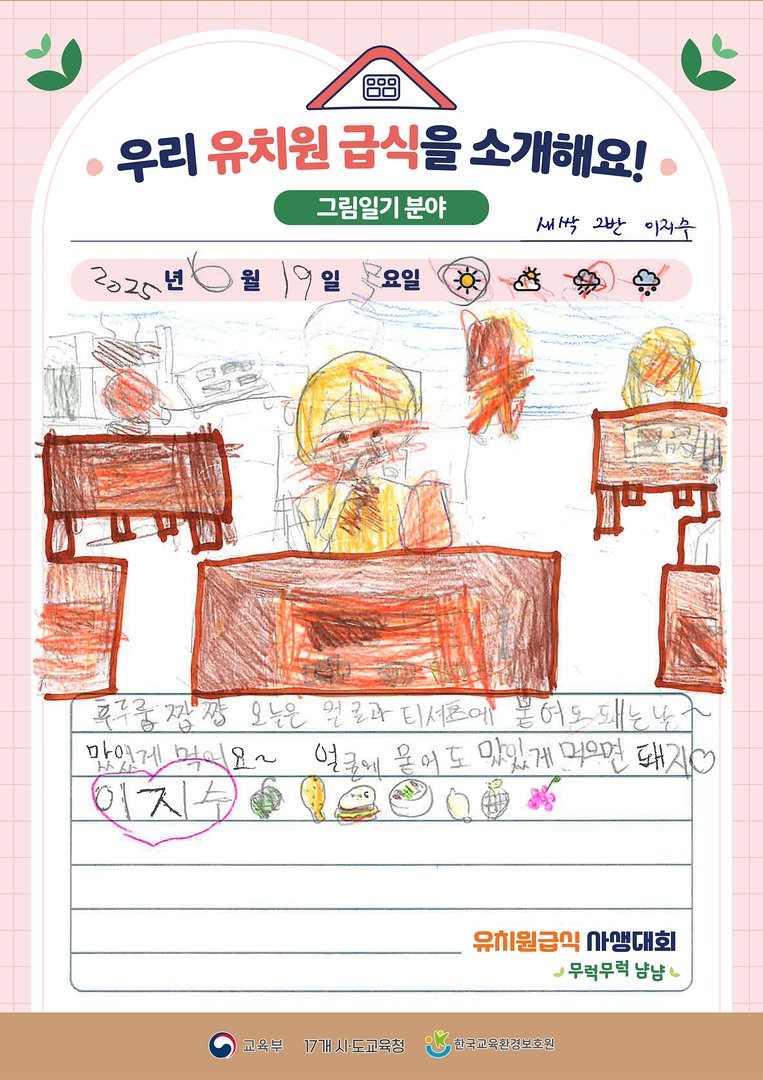 우리 유치원 급식을 소개해요!
그림일기 분야
새싹 2반 이지수
2025년 6월 19일 목요일
후루룹 짭짭 오늘은 얼굴과 티셔츠에 뭍어도 돼는 날~
맜있게 먹어요~ 얼굴에 뭍어도 맜있게 먹으면 돼지♡
이지수
유치원급식 사생대회
무럭무럭 냠냠
교육부 17개 시·도교육청 한국교육환경보호원